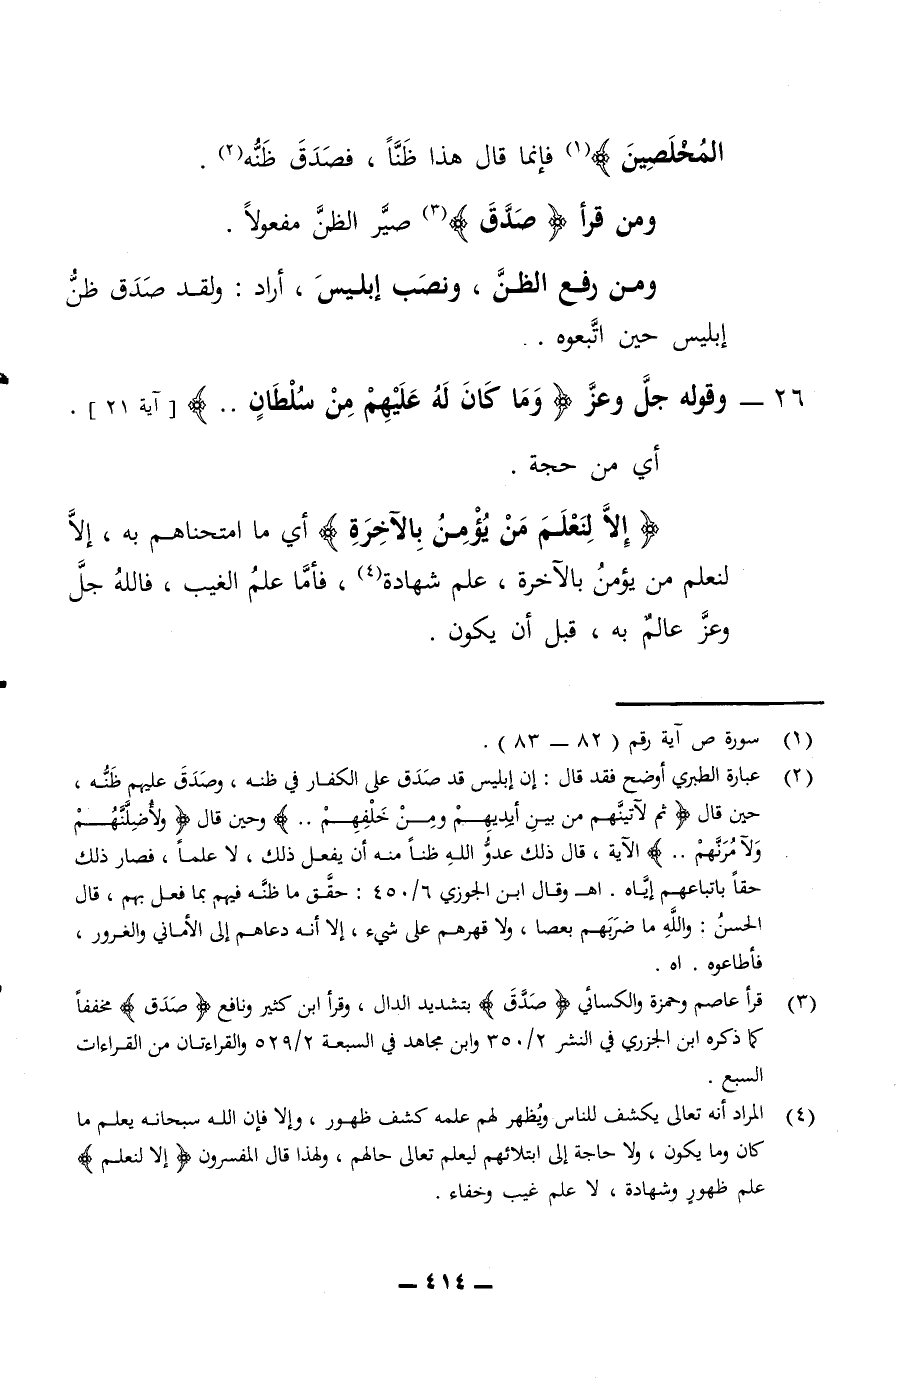 المُخْلَصِينَ ﴾(١) فإنما قال هذا ظَنَّاً ، فصَدَقَ ظَنُّه(٢) .
ومن قرأ ﴿ صَدَّقَ ﴾(٣) صيَّر الظنَّ مفعولاً .
ومـن رفـع الظـنَّ ، ونصَب إبليـسَ ، أراد : ولقـد صَدَق ظنُّ
إبليس حين اتَّبعوه . .
٢٦ ــ وقوله جلَّ وعزَّ ﴿ وَمَا كَانَ لَهُ عَلَيْهِمْ مِنْ سُلْطَانٍ .. ﴾ [ آية ٢١ ] .
أي من حجة .
﴿ إِلاَّ لِنَعْلَـمَ مَنْ يُؤْمِـنُ بِالآخِرَةِ ﴾ أي ما امتحناهـم به ، إلاَّ
لنعلم من يؤمنُ بالآخرة ، علم شهادة(٤) ، فأمَّا علمُ الغيب ، فاللهُ جلَّ
وعزَّ عالمٌ به ، قبل أن يكون .
(١) سورة ص آية رقم ( ٨٢ ــ ٨٣ ) .
(٢) عبارة الطبري أوضح فقد قال : إن إبليس قد صَدَق على الكفار في ظنه ، وصَدَقَ عليهم ظَنُّـه ،
حين قال ﴿ ثم لآتينَّهـم من بيـن أيديهـمْ ومـنْ خَلْفِهـمْ .. ﴾ وحين قال ﴿ ولأُضِلَّنَّهُـمْ
وَلآمُرَنَّهمْ .. ﴾ الآية ، قال ذلك عدوُّ اللهِ ظناً منه أن يفعـل ذلك ، لا علمـاً ، فصار ذلك
حقاً باتباعهـم إيَّاه . اهـ وقال ابـن الجوزي ٤٥٠/٦ : حقَّـق ما ظنَّـه فيهم بما فعـل بهم ، قال
الحسنُ : واللَّهِ ما ضرَبَهـم بعصا ، ولا قهرهـم على شيء ، إلا أنـه دعاهـم إلى الأماني والغـرور ،
فأطاعوه . اه .
(٣) قرأ عاصم وحمزة والكسائي ﴿ صَدَّقَ ﴾ بتشديد الدال ، وقرأ ابن كثير ونافع ﴿ صَدَق ﴾ مخففاً
كما ذكره ابن الجزري في النشر ٣٥٠/٢ وابن مجاهد في السبعـة ٥٢٩/٢ والقراءتـان من القـراءات
السبع .
(٤) المراد أنه تعالى يكشف للناس ويُظهر لهم علمه كشف ظهـور ، وإلا فإن اللـه سبحانـه يعلـم ما
كان وما يكون ، ولا حاجة إلى ابتلائهم ليعلم تعالى حالهم ، ولهذا قال المفسرون ﴿ إلا لنعلـم ﴾
علم ظهورٍ وشهادة ، لا علم غيب وخفاء .
ــ ٤١٤ ــ